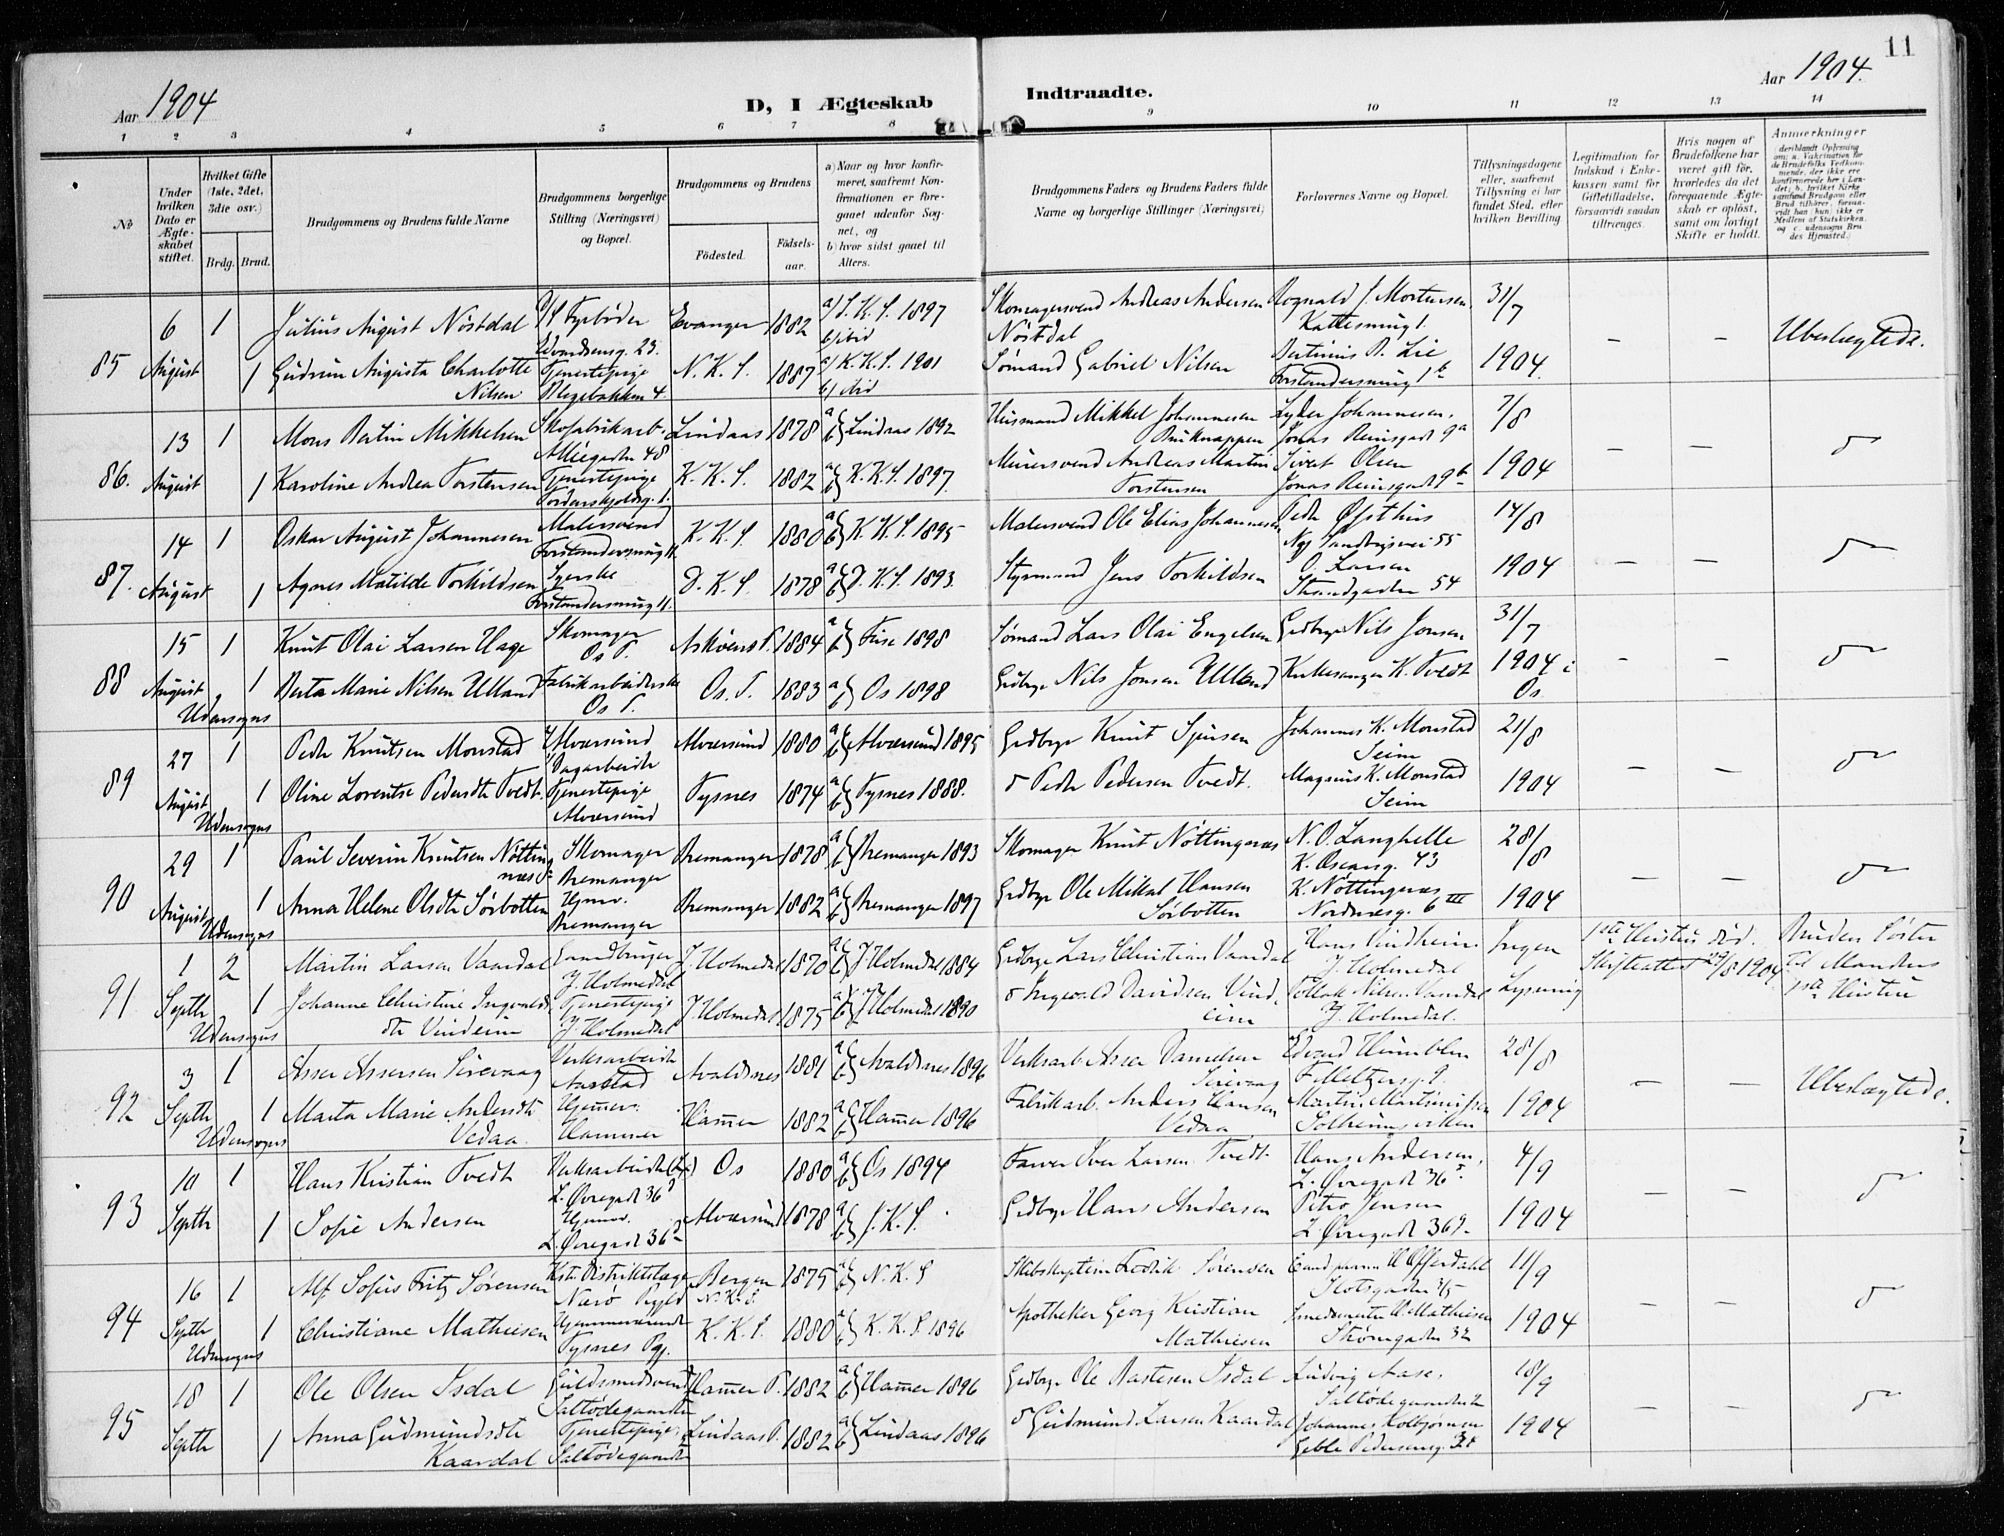 11
Aar 1904
D, I Ægteskab Indtraadte.
Aar 1904.
1 2 3 4 5 6 7 8 9 10 11 12 13 14
No
Under hvilken Dato er Ægteskabet stiftet.
Hvilket Gifte (1ste, 2det, 3die osv.)
Brdg. Brud.
Brudgommens og Brudens fulde Navne
Brudgommens borgerlige Stilling (Næringsvei) og Bopæl.
Brudgommens og Brudens
Födested.
Födselsaar.
a) Naar og hvor konfirmeret, saafremt Konfirmationen er foregaaet udenfor Sognet, og
b) hvor sidst gaaet til Alters.
Brudgommens Faders og Brudens Faders fulde Navne og borgerlige Stillinger (Næringsvei)
Forlovernes Navne og Bopæl.
Tillysningsdagene eller, saafremt Tillysning ei har fundet Sted, efter hvilken Bevilling
Legitimation for Indskud i Enkekassen samt for Giftetilladelse, forsaavidt saadan tiltrænges.
Hvis nogen af Brudefolkene har været gift för, hvorledes da det foregaaende Ægteskab er oplöst, samt om lovligt Skifte er holdt.
Anmerkninger
85
6 August 1
Julius August Nöstdal
Fyrböder
Edvardsensg. 23.
Evanger 1882
a) S. K. S. 1897
b) ibid
Skomagersvend Andreas Andersen Nöstdal
Rognald J. Mortensen
Kattesmug 1.
31/7
- -
Ubeslægtede.
1
Gudrun Augusta Charlotte Nilsen
Tjenestepige
Blegebakken 4
N. K. S. 1887
a) K. K. S. 1901
b) ibid
Sømand Gabriel Nilsen
Bertinius B. Lie
Forstandersmug 1 b
1904.
86.
13 August 1
Mons Berlin Mikkelsen
Skofabrikarb.
Alléegaden 48
Lindaas 1878
a b Lindaas 1892
Husmand Mikkel Johannesen
Lyder Johannesen.
Jonas Reinsgade 9a
7/8
- -
1
Karoline Andrea Torstensen
Tjenestepige
Tordenskjoldsg. 1.
K. K. S. 1882
a b K. K. S. 1897.
Murersvend Andreas Martin Torstensen
Sivert Olsen
Jonas Reinsgade 9b
1904
87.
14 August 1
Oskar August Johannesen
Malersvend
Forstandersmug 11.
K. K. S. 1880
a b K. K. S. 1895
Malersvend Ole Elias Johannesen
Peder Østhus
Nye Sandvigsvei 55
14/8
- -
1
Agnes Matilde Torkildsen
Syerske
Forstandersmug 11.
D. K. S. 1878
a b D. K. S. 1893.
Styrmand Jens Torkildsen
O. Larsen
Strandgaden 54
1904
88
15 August 1
Udensogns
Knut Olai Larsen Hage
Skomager
Os P.
Askvens P. 1884
a b Fuse 1898
Sømand Lars Olai Engelsen
Grdbrgr Nils Jonsen
31/7
- -
1
Berta Marie Nilsen Ulland
Fabrikarbeiderske
Os P.
Os. P. 1883
a b Os 1898
Grdbrgr Nils Jonsen Ulland
Kirkesanger K. Tvedt
1904 i Os.
89
27 August 1
Udensogns
Peder Knutsen Monstad
Alversund
Dagarbeider
Alversund 1880
a b Alversund 1895
Grdbrgr Knut Sjursen
Johannes K. Monstad
Seim
21/8
- -
1
Oline Lorentse Pedersdtr Tvedt.
Tjenestepige
Alversund
Tysnes 1874
a b Tysnes 1888.
Peder Pedersen Tvedt.
Magnus K. Monstad
Seim
1904
90
29 August 1
Udensogns
Paul Severin Knutsen Nöttingnæs
Skomager
Bremanger
Bremanger 1878
a b Bremanger 1893
Skomager Knut Nöttingnæs
N. O. Langhelle
K. Oscarsg. 43
28/8
- -
1
Anna Helene Olsdtr Sörbotten
Hjmv.
Bremanger
Bremanger 1882
a b Bremanger 1897
Grdbrgr Ole Mikal Hansen Sörbotten
K. Nöttingnæs
Nordnæsg. 6 III
1904
91
1 Septbr 2
Udensogns
Martin Larsen Vaardal
Gaardbruger
Y. Holmedal
Y. Holmedal 1870
a b Y. Holmedal 1884
Grdbrgr Lars Christian Vaardal
Hans Vindheim
Y. Holmedal
Ingen Lysning
1ste Hustru död.
Skifteattest 29/8 1904.
Bruden Söster til Mandens 1ste Hustru
1
Johanne Christine Ingvaldsdtr Vindeim
Tjenestepige
Y. Holmedal
Y. Holmedal 1875
a b Y. Holmedal 1890
Ingvald Davidsen Vindeim
Tollak Nilsen Vaardal
Y. Holmedal.
92
3 Septbr 1
Udensogns
Asser Assersen Sirevaag
Verksarbeider
Aarstad
Avaldsnes 1881
a b Avaldsnes 1896
Verksarb. Asser Danielsen Sirevaag
Edvard Humblen
F. Meltzersg. 9.
28/8
- -
Ubeslægtede.
1
Marta Marie Andersdtr Vedaa
Hjemmev.
Hammer
Hamer 1882
a b Hamer 1896
Fabrikarb. Anders Hansen Vedaa
Martin Martinussen
Solheimsviken
1904
93
10 Septbr 1
Hans Kristian Tvedt
Verksarbeider
L. Øvregade 36
Os 1880
a b Os 1894
Farver Iver Larsen Tvedt
Hans Andersen,
L. Øvregade 36
4/9
- -
1
Sofie Andersen
Hjemv.
L. Øvregade 36
Alversund 1878
a b J. K. S.
Grdbrgr Hans Andersen
Petra Jensen
L. Øvregade 36
1904
94
16 Septbr 1
Udensogns
Alf Sofus Fritz Sörensen
Kst. Distriktslæge
Nærö Prgjld
Bergen
N. K. S.
1875
a b N. K. S
Skibskaptein Fredrik Sörensen
Cand. pharm. H Offerdahl
Slotsgaden 3/5
11/9
- -
1
Christiane Mathiesen
Hjemmeværende
Tysnes Pgj.
K. K. S. 1880
a b K. K. S 1896
Apotheker Georg Kristian Mathiesen
Smedemester H. Mathiesen
Strömgaden 32
1904
95
18 Septbr 1
Ole Olsen Isdal
Guldsmedsvend
Saltödegaarden
Hamer P. 1882
a b Hamer 1896
Grdbrgr Ole Bastesen Isdal
Ludvig Aase.
Saltödegaarden
18/9
- -
1
Anna Gudmundsdtr Kaardal
Tjenestepige,
Saltödegaarden
Lindaas P. 1882
a b Lindaas 1896
Gudmund Larsen Kaardal
Johannes Kolbjörnsen
Geble Pedersensg.
1904